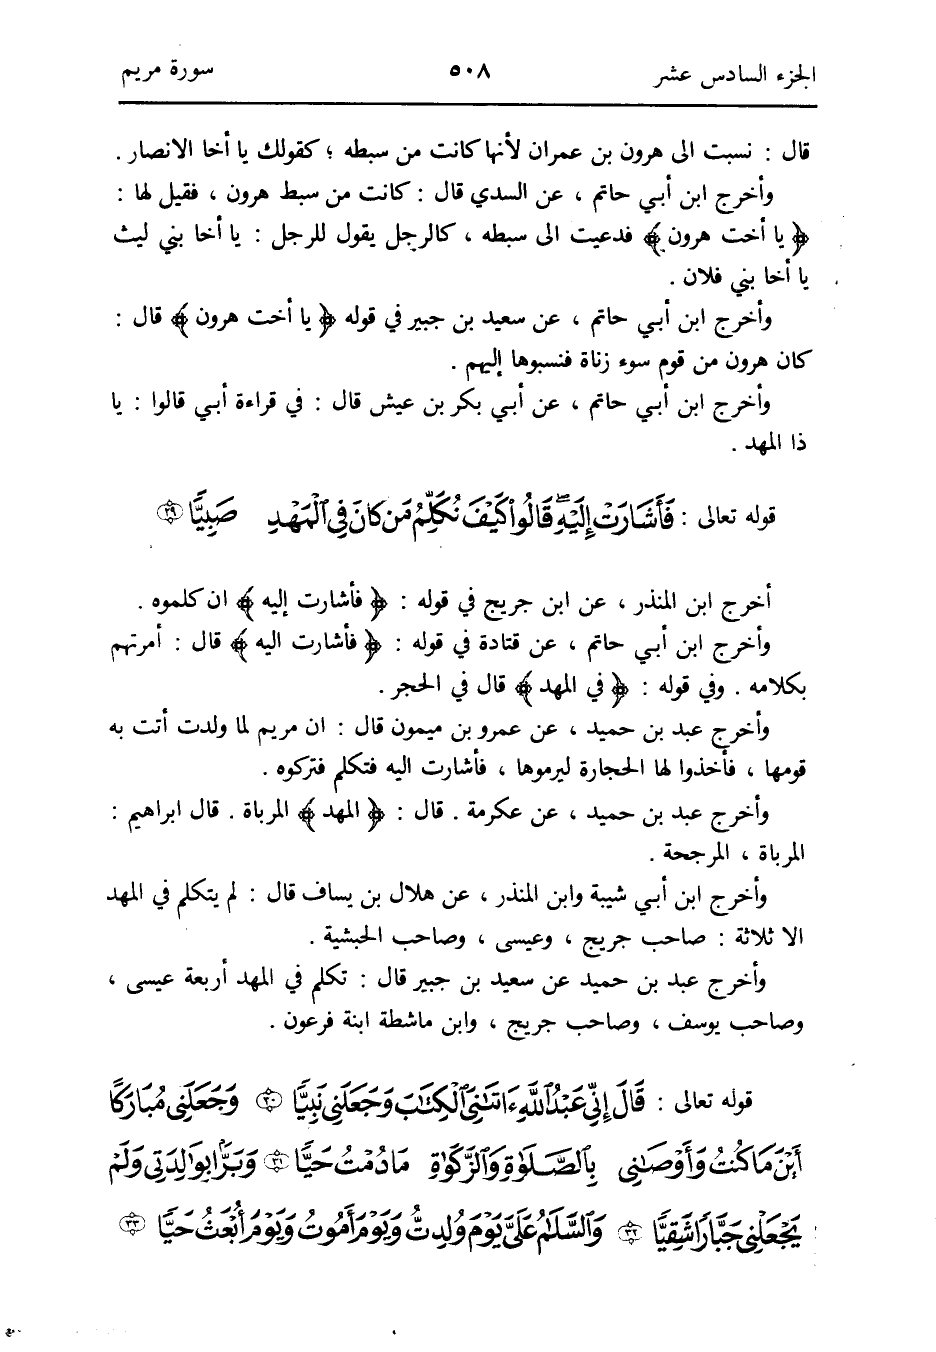 الجزء السادس عشر ٥٠٨ سورة مريم
قال : نسبت الى هرون بن عمران لأنها كانت من سبطه ؛ كقولك يا أخا الانصار .
وأخرج ابن أبي حاتم ، عن السدي قال : كانت من سبط هرون ، فقيل لها :
﴿ يا أخت هرون ﴾ فدعيت الى سبطه ، كالرجل يقول للرجل : يا أخا بني ليث
يا أخا بني فلان .
وأخرج ابن أبي حاتم ، عن سعيد بن جبير في قوله ﴿ يا أخت هرون ﴾ قال :
كان هرون من قوم سوء زناة فنسبوها إليهم .
وأخرج ابن أبي حاتم ، عن أبي بكر بن عيش قال : في قراءة أبي قالوا : يا
ذا المهد .
قوله تعالى : فَأَشَارَتْ إِلَيْهِ ۖ قَالُوا۟ كَيْفَ نُكَلِّمُ مَن كَانَ فِى ٱلْمَهْدِ صَبِيًّا ٢٩
أخرج ابن المنذر ، عن ابن جريج في قوله : ﴿ فأشارت إليه ﴾ ان كلموه .
وأخرج ابن أبي حاتم ، عن قتادة في قوله : ﴿ فأشارت اليه ﴾ قال : أمرتهم
بكلامه . وفي قوله : ﴿ في المهد ﴾ قال في الحجر .
وأخرج عبد بن حميد ، عن عمرو بن ميمون قال : ان مريم لما ولدت أتت به
قومها ، فأخذوا لها الحجارة ليرموها ، فأشارت اليه فتكلم فتركوه .
وأخرج عبد بن حميد ، عن عكرمة . قال : ﴿ المهد ﴾ المرباة . قال ابراهيم :
المرباة ، المرجحة .
وأخرج ابن أبي شيبة وابن المنذر ، عن هلال بن يساف قال : لم يتكلم في المهد
الا ثلاثة : صاحب جريج ، وعيسى ، وصاحب الحبشية .
وأخرج عبد بن حميد عن سعيد بن جبير قال : تكلم في المهد أربعة عيسى ،
وصاحب يوسف ، وصاحب جريج ، وابن ماشطة ابنة فرعون .
قوله تعالى : قَالَ إِنِّى عَبْدُ ٱللَّهِ ءَاتَىٰنِىَ ٱلْكِتَٰبَ وَجَعَلَنِى نَبِيًّا ٣٠ وَجَعَلَنِى مُبَارَكًا
أَيْنَ مَا كُنتُ وَأَوْصَٰنِى بِٱلصَّلَوٰةِ وَٱلزَّكَوٰةِ مَا دُمْتُ حَيًّا ٣١ وَبَرًّۢا بِوَٰلِدَتِى وَلَمْ
يَجْعَلْنِى جَبَّارًا شَقِيًّا ٣٢ وَٱلسَّلَٰمُ عَلَىَّ يَوْمَ وُلِدتُّ وَيَوْمَ أَمُوتُ وَيَوْمَ أُبْعَثُ حَيًّا ٣٣